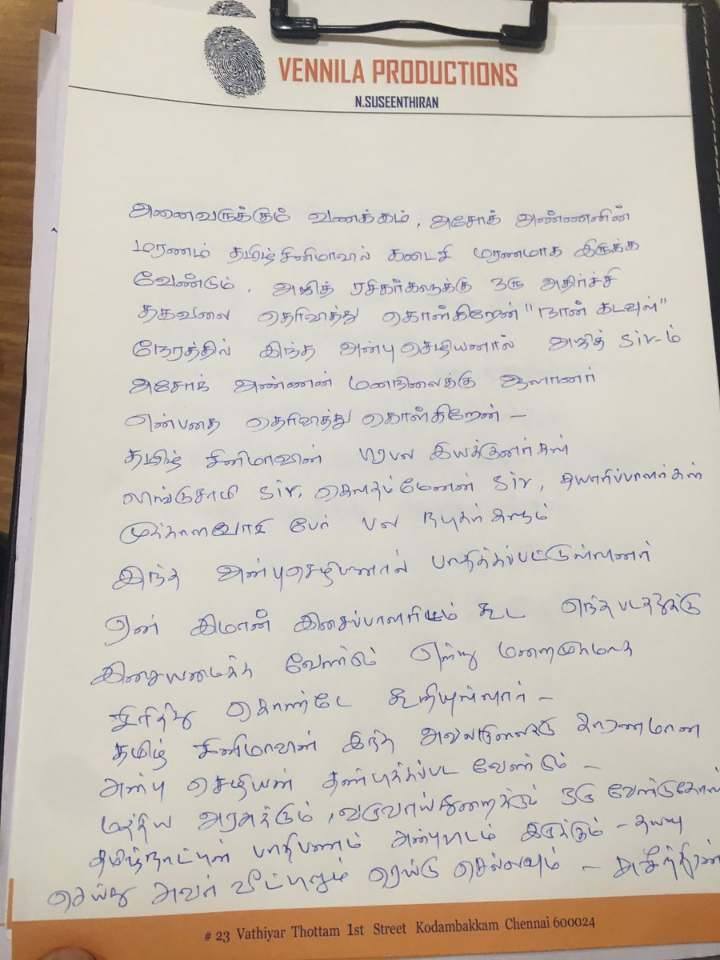 VENNILA PRODUCTIONS
N.SUSEENTHIRAN
அனைவருக்கும் வணக்கம், அசோக் அண்ணனின்
மரணம் தமிழ்சினிமாவில் கடைசி மரணமாக இருக்க
வேண்டும். அஜித் ரசிகர்களுக்கு ஒரு அதிர்ச்சி
தகவலை தெரிவித்து கொள்கிறேன் "நான் கடவுள்"
நேரத்தில் இந்த அன்புசெழியனால் அஜித் sir-ம்
அசோக் அண்ணன் மனநிலைக்கு ஆளானார்
என்பதை தெரிவித்து கொள்கிறேன் –
தமிழ் சினிமாவின் பிரபல இயக்குனர்கள்
லிங்குசாமி sir, கௌதம்மேனன் sir, தயாரிப்பாளர்கள்
முக்காலவாசி பேர் பல நடிகர்களும்
இந்த அன்புசெழியனால் பாதிக்கப்பட்டுள்ளனர்
ஏன் இமான் இசைப்பாளரிடம் கூட எந்தபடத்துக்கு
இசையமைக்க வேண்டும் என்று மறைமுகமாக
சிரித்து கொண்டே கூறியுள்ளார் –
தமிழ் சினிமாவின் இந்த அவலநிலைக்கு காரணமான
அன்பு செழியன் தண்டிக்கப்பட வேண்டும் –
மத்திய அரசுக்கும், வருவாய்துறைக்கும் ஒரு வேண்டுகோள்
தமிழ்நாட்டின் பாதிபணம் அன்புயிடம் இருக்கும் – தயவு
செய்து அவர் வீட்டிலும் ரெய்டு செல்லவும் – சுசீந்திரன்
# 23 Vathiyar Thottam 1st Street Kodambakkam Chennai 600024